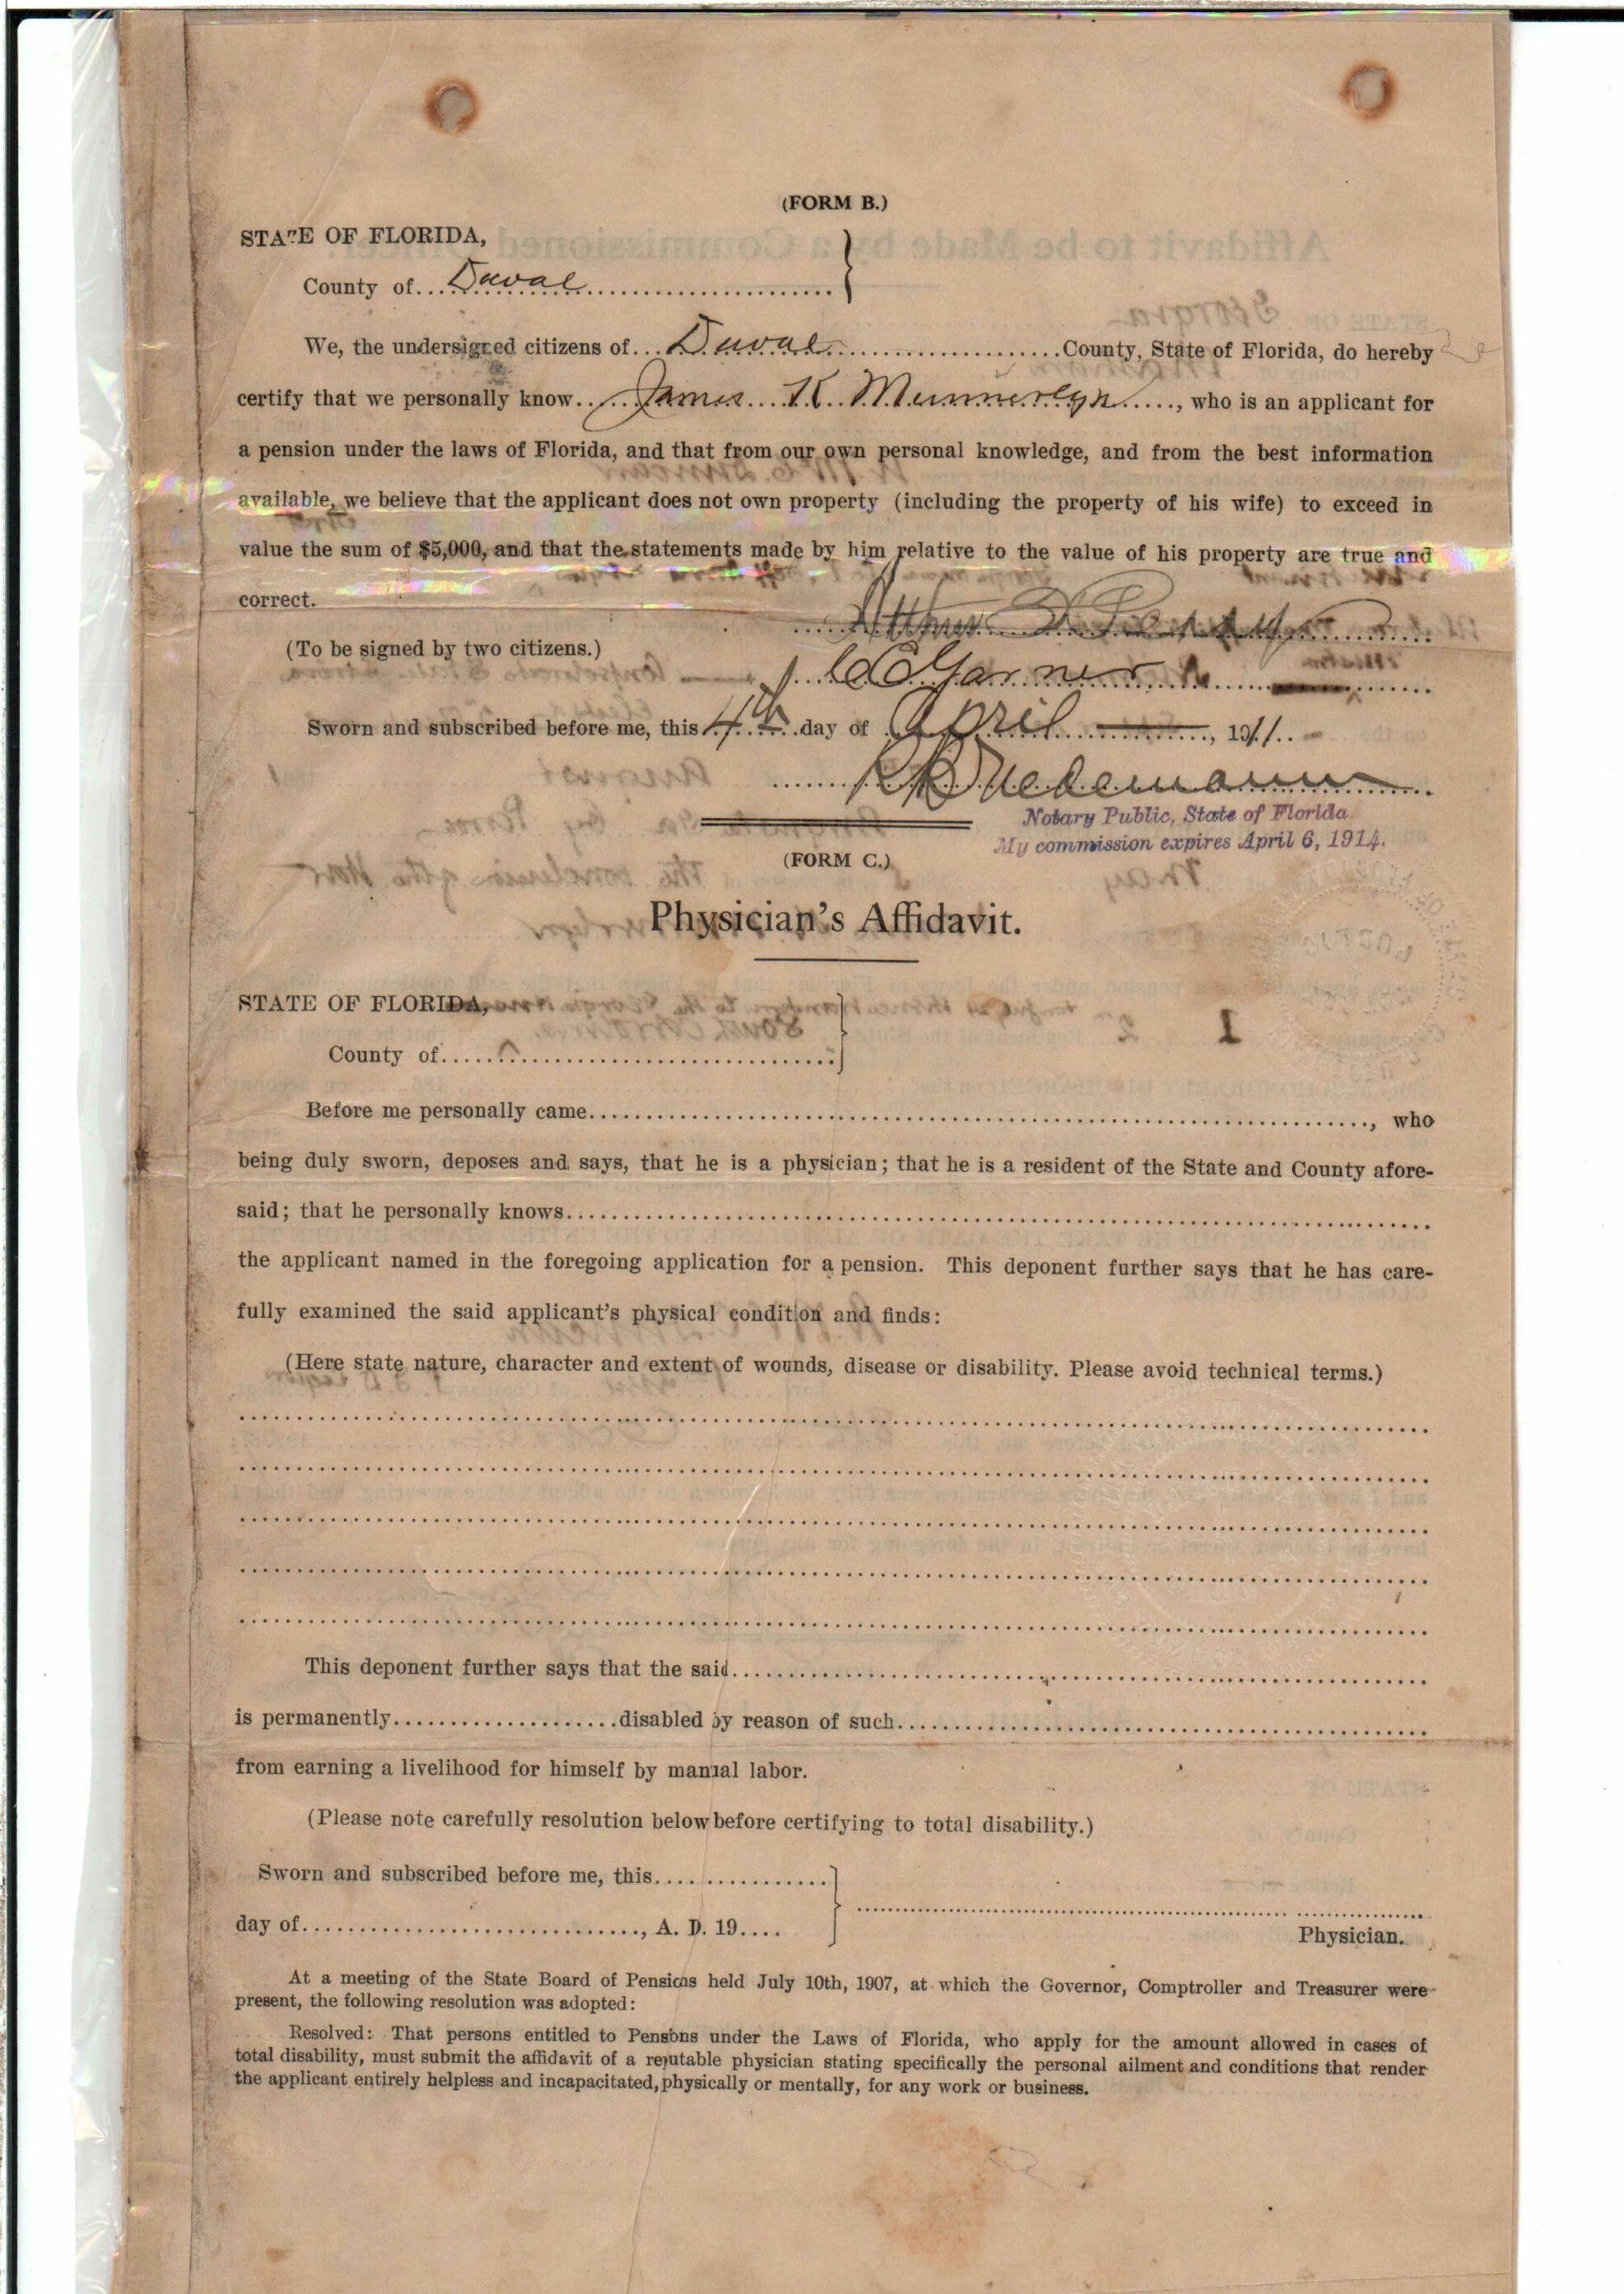 (FORM B.)
STATE OF FLORIDA,
County of Duval
We, the undersigned citizens of Duval County, State of Florida, do hereby
certify that we personally know James K. Munnerlyn, who is an applicant for
a pension under the laws of Florida, and that from our own personal knowledge, and from the best information
available, we believe that the applicant does not own property (including the property of his wife) to exceed in
value the sum of $5,000, and that the statements made by him relative to the value of his property are true and
correct.
(To be signed by two citizens.)
C C Garner
Sworn and subscribed before me, this 4th day of April, 1911.
Notary Public, State of Florida.
My commission expires April 6, 1914.
(FORM C.)
Physician's Affidavit.
STATE OF FLORIDA,
County of
Before me personally came, who
being duly sworn, deposes and says, that he is a physician; that he is a resident of the State and County afore-
said; that he personally knows
the applicant named in the foregoing application for a pension. This deponent further says that he has care-
fully examined the said applicant's physical condition and finds:
(Here state nature, character and extent of wounds, disease or disability. Please avoid technical terms.)
This deponent further says that the said
is permanently disabled by reason of such
from earning a livelihood for himself by manual labor.
(Please note carefully resolution below before certifying to total disability.)
Sworn and subscribed before me, this
day of, A. D. 19
Physician.
At a meeting of the State Board of Pensions held July 10th, 1907, at which the Governor, Comptroller and Treasurer were
present, the following resolution was adopted:
Resolved: That persons entitled to Pensions under the Laws of Florida, who apply for the amount allowed in cases of
total disability, must submit the affidavit of a reputable physician stating specifically the personal ailment and conditions that render
the applicant entirely helpless and incapacitated, physically or mentally, for any work or business.